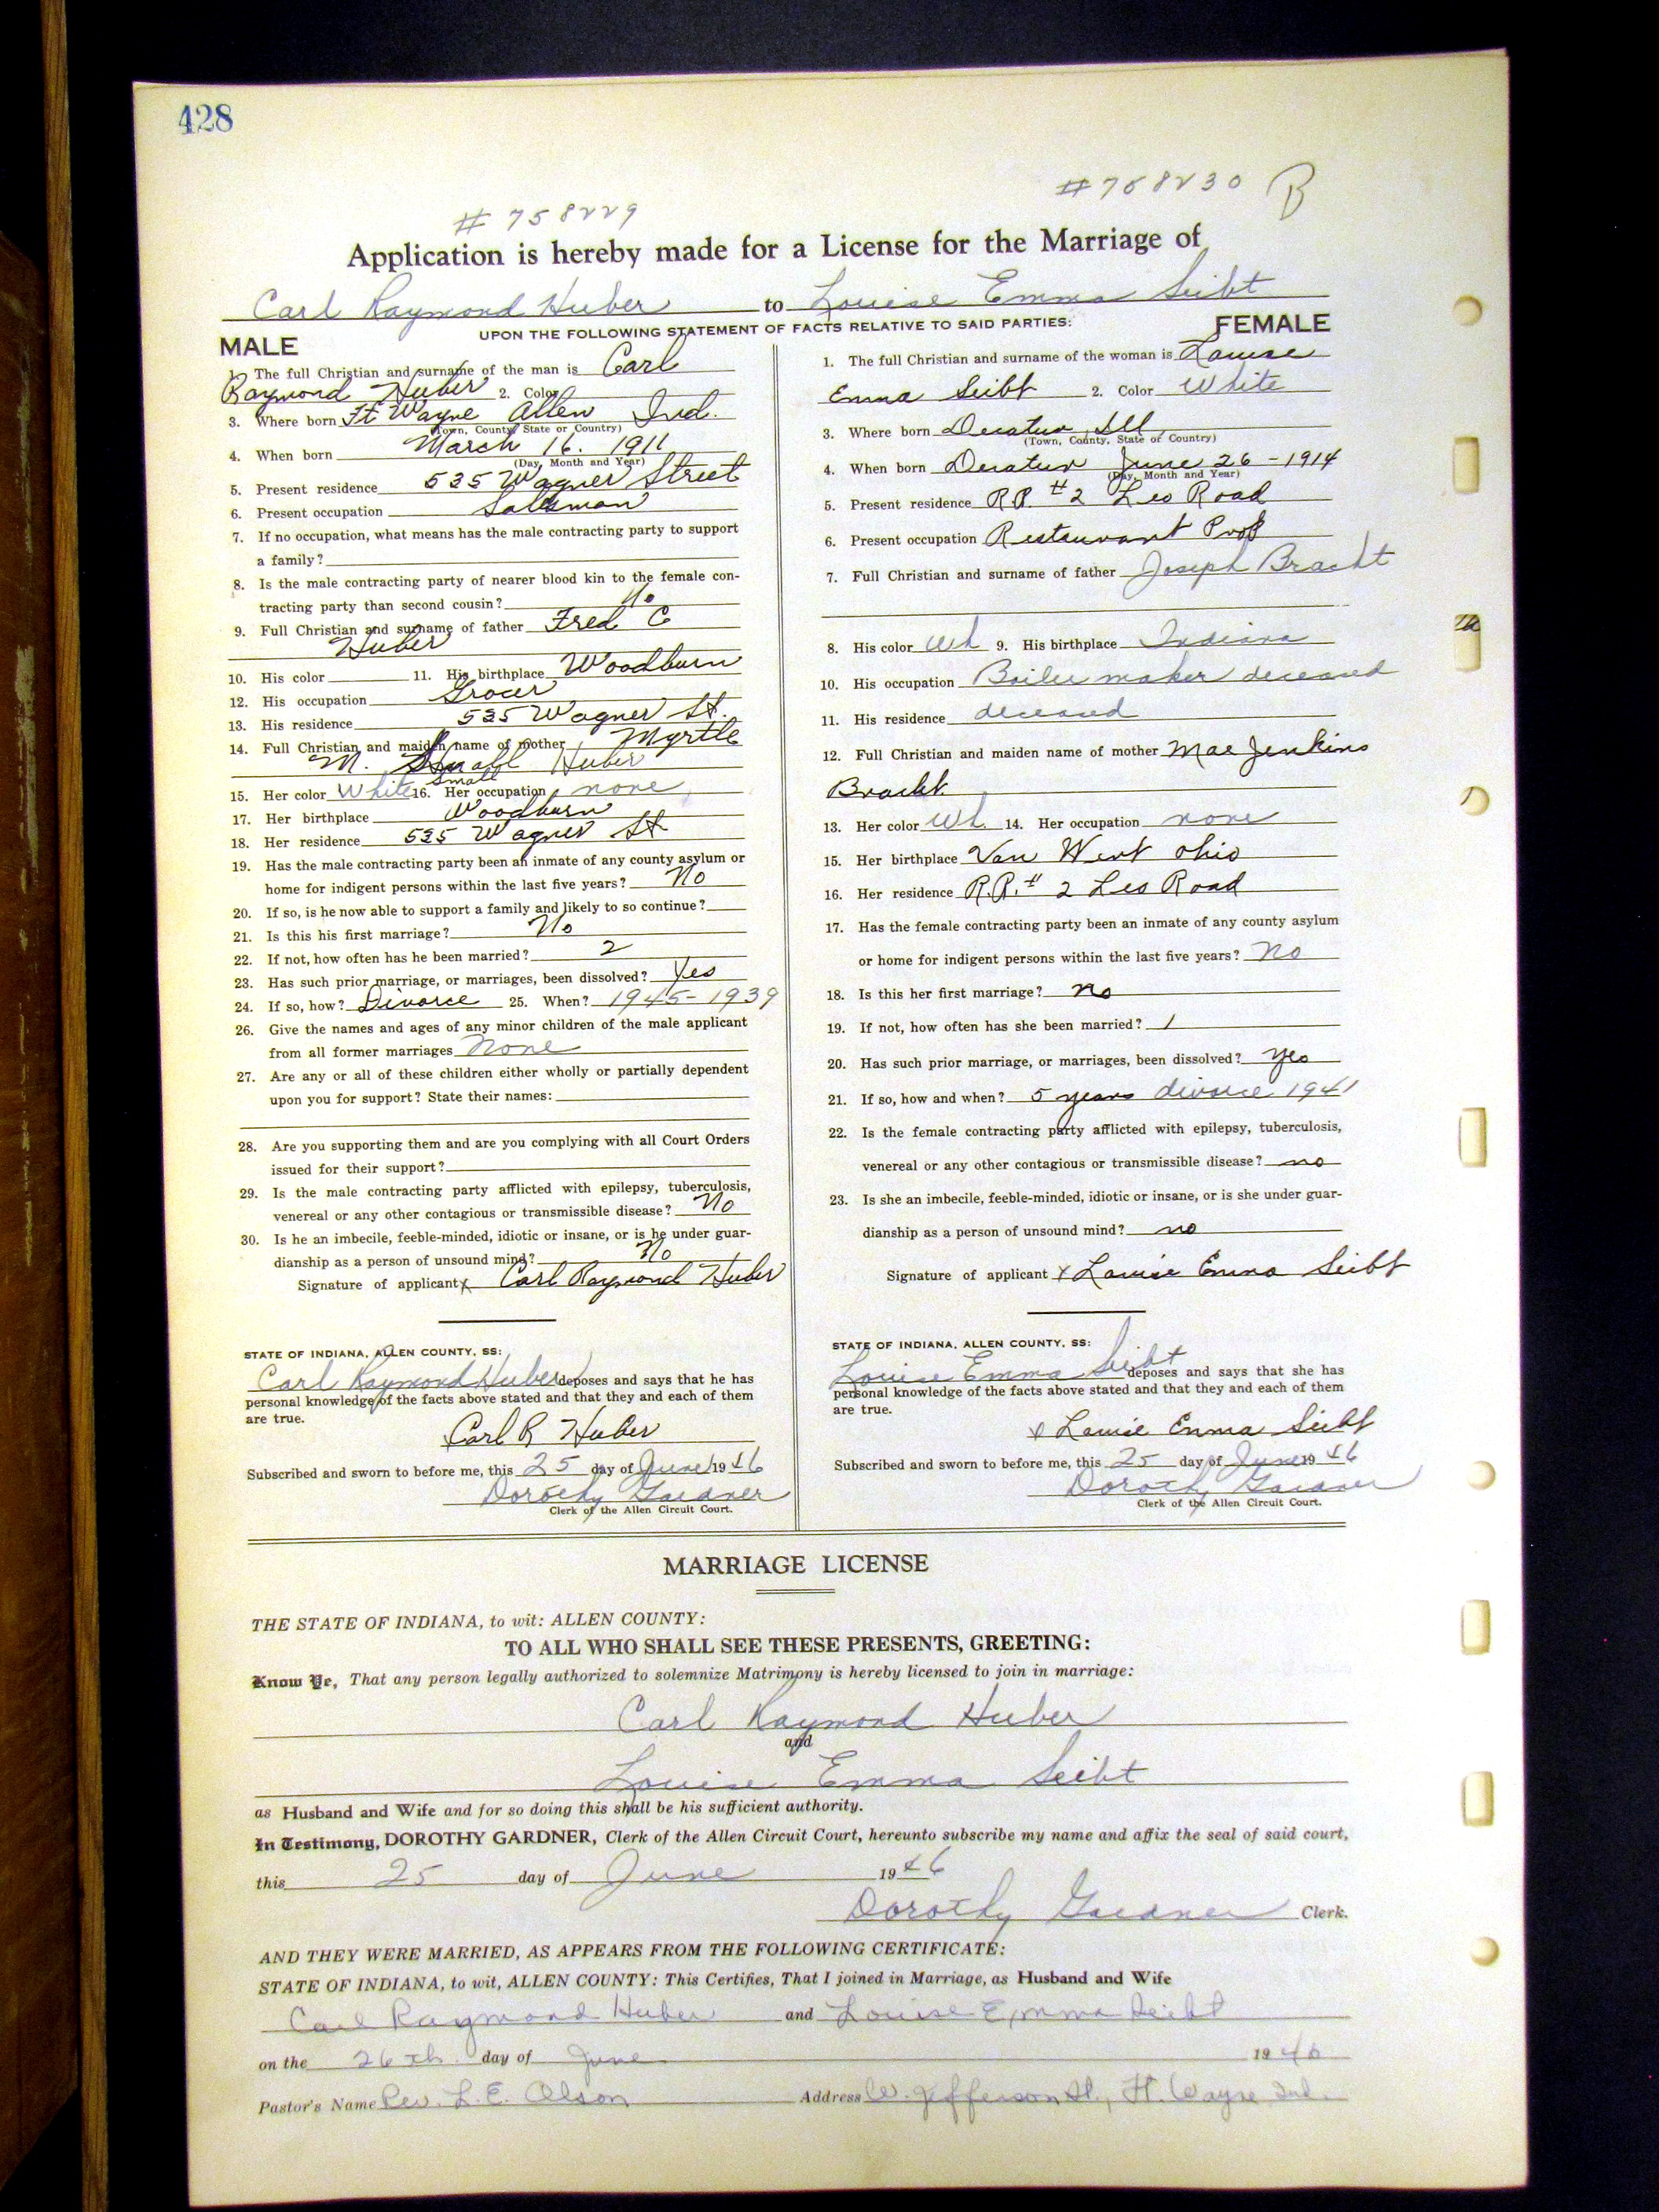 428
#758229
#758230 B
Application is hereby made for a License for the Marriage of
Carl Raymond Huber to Louise Emma Seibt
UPON THE FOLLOWING STATEMENT OF FACTS RELATIVE TO SAID PARTIES:
MALE
1. The full Christian and surname of the man is Carl
Raymond Huber 2. Color
3. Where born Ft Wayne Allen Ind.
(Town, County, State or Country)
4. When born March 16. 1911
(Day, Month and Year)
5. Present residence 535 Wagner Street
6. Present occupation Salesman
7. If no occupation, what means has the male contracting party to support
a family?
8. Is the male contracting party of nearer blood kin to the female con-
tracting party than second cousin? No
9. Full Christian and surname of father Fred C
Huber
10. His color 11. His birthplace Woodburn
12. His occupation Grocer
13. His residence 535 Wagner St.
14. Full Christian and maiden name of mother Myrtle
M. Small Huber
Small
15. Her color White 16. Her occupation none
17. Her birthplace Woodburn
18. Her residence 535 Wagner St
19. Has the male contracting party been an inmate of any county asylum or
home for indigent persons within the last five years? No
20. If so, is he now able to support a family and likely to so continue?
21. Is this his first marriage? No
22. If not, how often has he been married? 2
23. Has such prior marriage, or marriages, been dissolved? Yes
24. If so, how? Divorce 25. When? 1945-1939
26. Give the names and ages of any minor children of the male applicant
from all former marriages None
27. Are any or all of these children either wholly or partially dependent
upon you for support? State their names:
28. Are you supporting them and are you complying with all Court Orders
issued for their support?
29. Is the male contracting party afflicted with epilepsy, tuberculosis,
venereal or any other contagious or transmissible disease? No
30. Is he an imbecile, feeble-minded, idiotic or insane, or is he under guar-
dianship as a person of unsound mind? No
Signature of applicant x Carl Raymond Huber
STATE OF INDIANA, ALLEN COUNTY, SS:
Carl Raymond Huber deposes and says that he has
personal knowledge of the facts above stated and that they and each of them
are true.
x Carl R Huber
Subscribed and sworn to before me, this 25 day of June 1946
Dorothy Gardner
Clerk of the Allen Circuit Court.
FEMALE
1. The full Christian and surname of the woman is Louise
Emma Seibt 2. Color White
3. Where born Decatur, Ill
(Town, County, State or Country)
4. When born Decatur June 26-1914
(Day, Month and Year)
5. Present residence R.R. #2 Leo Road
6. Present occupation Restaurant Prop
7. Full Christian and surname of father Joseph Bracht
8. His color Wh 9. His birthplace Indiana
10. His occupation Boiler maker deceased
11. His residence deceased
12. Full Christian and maiden name of mother Mae Jenkins
Bracht
13. Her color Wh. 14. Her occupation none
15. Her birthplace Van Wert Ohio
16. Her residence R.R. # 2 Leo Road
17. Has the female contracting party been an inmate of any county asylum
or home for indigent persons within the last five years? No
18. Is this her first marriage? no
19. If not, how often has she been married? 1
20. Has such prior marriage, or marriages, been dissolved? yes
21. If so, how and when? 5 years divorce 1941
22. Is the female contracting party afflicted with epilepsy, tuberculosis,
venereal or any other contagious or transmissible disease? no
23. Is she an imbecile, feeble-minded, idiotic or insane, or is she under guar-
dianship as a person of unsound mind? no
Signature of applicant x Louise Emma Seibt
STATE OF INDIANA, ALLEN COUNTY, SS:
Louise Emma Seibt deposes and says that she has
personal knowledge of the facts above stated and that they and each of them
are true.
x Louise Emma Seibt
Subscribed and sworn to before me, this 25 day of June 1946
Dorothy Gardner
Clerk of the Allen Circuit Court.
MARRIAGE LICENSE
THE STATE OF INDIANA, to wit: ALLEN COUNTY:
TO ALL WHO SHALL SEE THESE PRESENTS, GREETING:
Know Ye, That any person legally authorized to solemnize Matrimony is hereby licensed to join in marriage:
Carl Raymond Huber
and
Louise Emma Seibt
as Husband and Wife and for so doing this shall be his sufficient authority.
In Testimony, DOROTHY GARDNER, Clerk of the Allen Circuit Court, hereunto subscribe my name and affix the seal of said court,
this 25 day of June 1946
Dorothy Gardner Clerk.
AND THEY WERE MARRIED, AS APPEARS FROM THE FOLLOWING CERTIFICATE:
STATE OF INDIANA, to wit, ALLEN COUNTY: This Certifies, That I joined in Marriage, as Husband and Wife
Carl Raymond Huber and Louise Emma Seibt
on the 26th day of June 1946
Pastor's Name Rev. L. E. Olson Address W. Jefferson St., Ft. Wayne Ind.